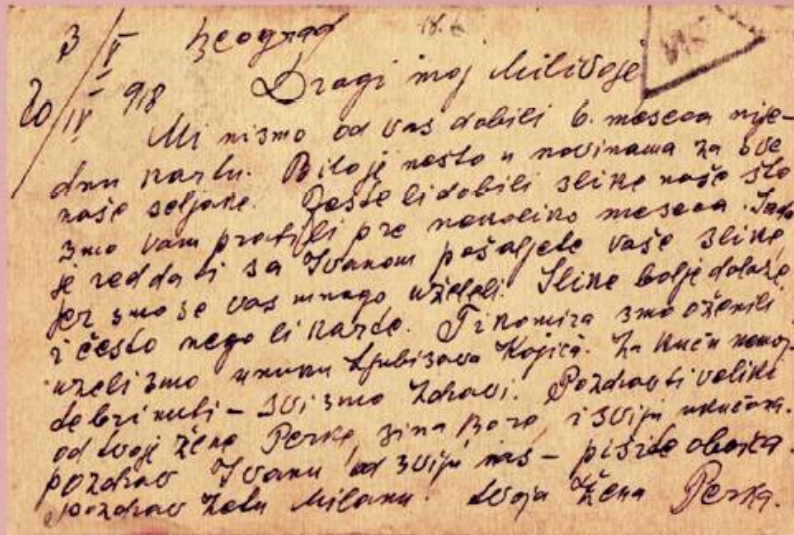 3/V Beograd 18.
20/IV 918 Dragi moj Milivoje
Mi nismo od vas dobili 6. meseca nije-
dnu kartu. Bilo je nešto u novinama za sve
naše seljake. Jeste li dobili slike naše što
smo vam pratili pre nekoliko meseca. Sada
je red da ti sa Ivanom pošaljete vaše slike,
jer smo se vas mnogo uželeli. Slike bolje dolaze
i često nego li karte. Tihomira smo oženili
uzeli smo unuku Ljubisava Kojića. Za kuću nemoj-
te brinuti - svi smo zdravi. Pozdrav ti veliki
od tvoje žene Perke, sina Bore, i sviju ukućana.
pozdrav Ivanu od sviju nas - pišite obojica.
pozdrav zetu Milanu. tvoja žena Perka.